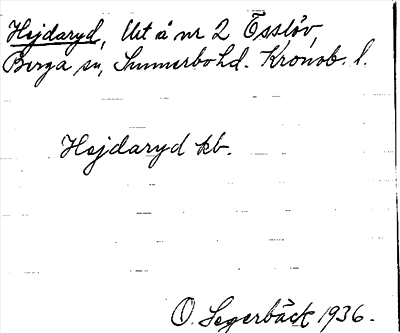 Hejdaryd, Ut å nr 2 Össlöv,
Berga sn, Sunnerbo hd. Kronob. l.
Hejdaryd kb.
O. Segerbäck 1936.